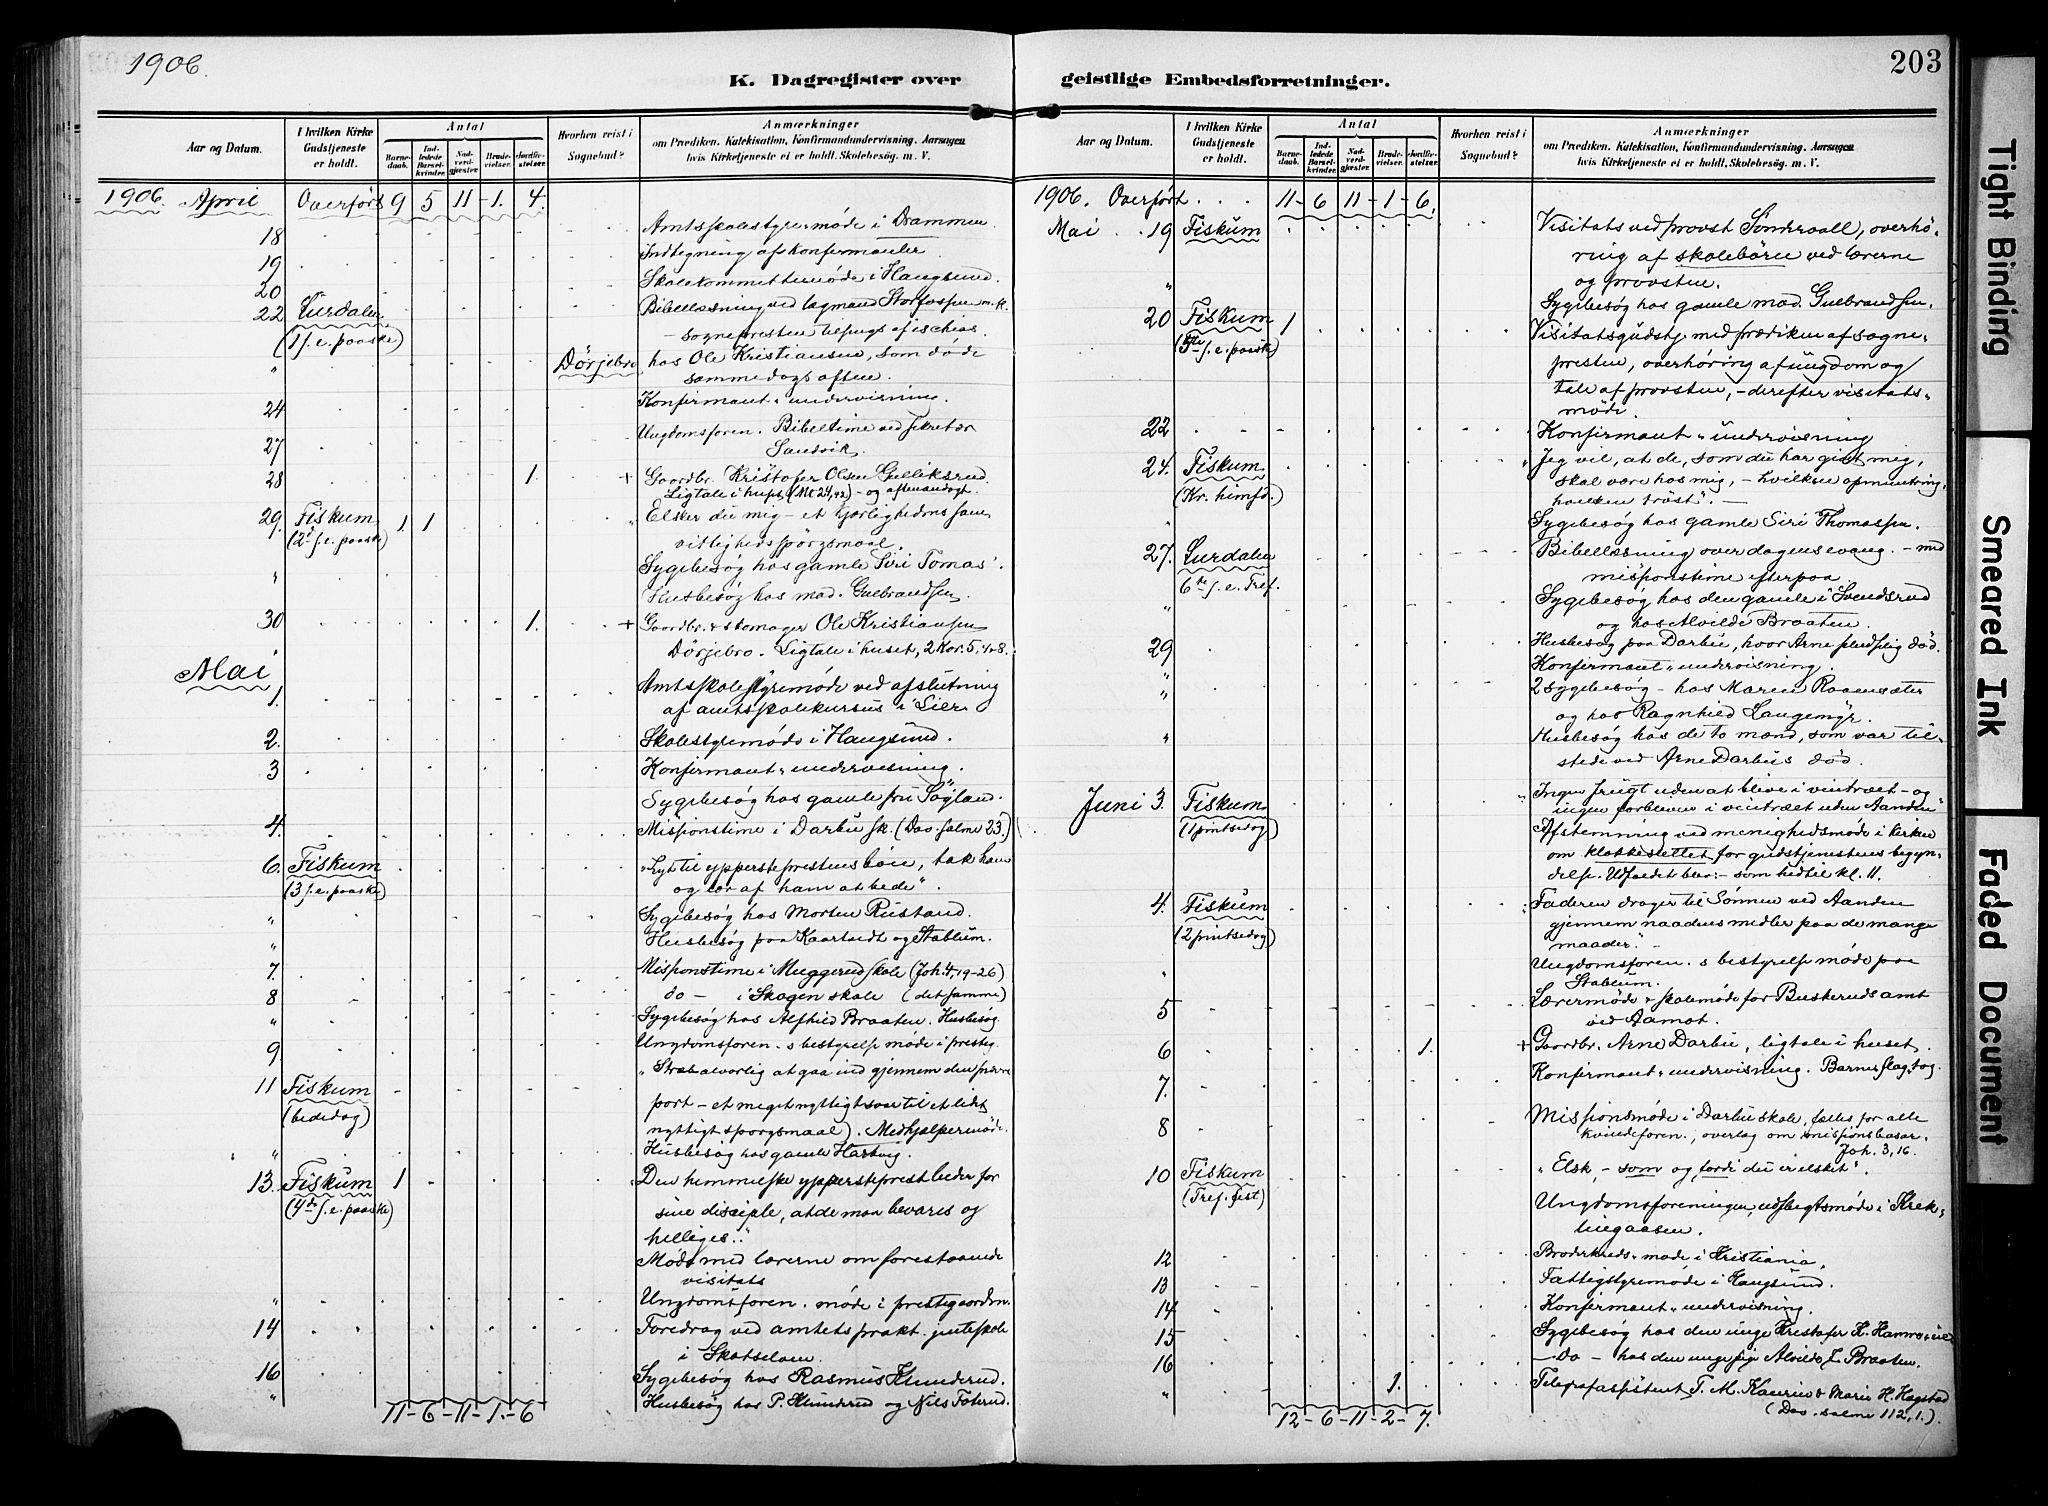 1906.
K. Dagregister over
Aar og Datum.
I hvilken Kirke Gudstjeneste er holdt.
Antal
Barnedaab.
Indledede Barselkvinder.
Nadverdgjæster.
Brudevielser.
Jordfæstelser.
Hvorhen reist i Sognebud?
Anmærkninger
om Prædiken, Katekisation, Konfirmandundervisning, Aarsagen
hvis Kirketjeneste ei er holdt, Skolebesøg. m. V.
1906. April Overført 9 5 11 - 1. 4.
18 Amtsskolestyremøde i Drammen
19 Indtegning af konfirmanter
20 Skolekommittemøde i Haugsund.
22 Lurdalen Bibellæsning ved lagmand Storfossen
(1 s. e. paaske) - sognepresten ischias.
" Dörjebro hos Ole Kristiansen, som døde
samme dags aften.
24 Konfirmant-undervisning.
27 Ungdomsforen. Bibeltime ved sekretær
Sandvik.
28 1. + Gaardbr. Kristofer Olsen Gulliksrud
Ligtale i huse, (Mt 24,42) - og aftenandagt.
29. Fiskum 1 1 " Elsker du mig - et kjærlighedens sam
(2d s. e. paaske) vittighedsspörgsmaal.
" Sygebesøg hos gamle Siri Tomas'.
Husbesøg hos mad. Gulbrandsen.
30 1. + Gaardbr. & skomager Ole Kristiansen
Dörjebro. Ligtale i huset, 2 Kor. 5, 4-8.
Mai
1. Amtsskolestyremøde ved afslutning
af amtsskolekursus i Lier
2. Skolestyremøde i Haugsund.
3 Konfirmant-undervisning.
Sygebesøg hos gamle fru Fogland.
4. Missionstime i Darbu sk. (Dav. salme 23.)
6. Fiskum "Lyt til ypperstepræstens bøn, tak ham
(3 s. e. paaske) og lær af ham at bede".
" Sygebesøg hos Morten Rustand.
" Husbesøg paa Kaartvedt og Stablum.
7. Missionstime i Muggerud skole (Joh. 4, 19-26)
8 do - i Skogen skole (det samme)
" Sygebesøg hos Alfhild Braaten. Husbesøg
9 Ungdomsforen.s bestyrelsesmøde i prestg.
11 Fiskum "Stræb alvorlig at gaa ind gjennem den snævre
(bededag) port - et meget nyttigt svar til et lidt
nyttigt spörgsmaal). Medhjælpermøde.
" Husbesøg hos gamle Hartvig.
13. Fiskum 1 "Den himmelske ypperstepræst beder for
(4de s. e. paaske) sine disciple, at de maa bevares og
helliges."
Møde med lærerne om forestaaende
visitats
" Ungdomsforen. møde i prestegaarden.
14 Foredrag ved amtets prakt. jenteskole
i Skotselven.
16 Sygebesøg hos Rasmus Klunderud.
" Husbesøg hos P. Klunderud og Nils Föterud.
11 - 6 - 11 - 1 - 6
203
geistlige Embedsforretninger.
Aar og Datum.
I hvilken Kirke Gudstjeneste er holdt.
Antal
Barnedaab.
Indledede Barselkvinder.
Nadverdgjæster.
Brudevielser.
Jordfæstelser.
Hvorhen reist i Sognebud?
Anmærkninger
om Prædiken, Katekisation, Konfirmandundervisning, Aarsagen
hvis Kirketjeneste ei er holdt, Skolebesøg. m. V.
1906. Overført 11 - 6 11 - 1 - 6.
Mai 19 Fiskum Visitats ved provst Sönderaall, overhø-
ring af skolebörn ved lærerne
og provsten.
" Sygebesøg hos gamle mad. Gulbrandsen.
20 Fiskum 1 Visitatsgudstj. med prædiken af sogne-
(5te s. e. paaske) presten, overhøring af ungdom og
tale af provsten, - derefter visitats-
møde.
22 Konfirmant-undervisning
24. Fiskum "Jeg vil, at de, som du har givet mig,
(Kr. himfd.) skal være hos mig, - hvilken opmuntring,
hvilken trøst". -
" Sygebesøg hos gamle Siri Thomassen.
27. Lurdalen Bibellæsning over dagens evang. - med
6te s. e. Tref. missionstime efterpaa.
" Sygebesøg hos den gamle i Svendsrud
og hos Alvilde Braaten.
29 Husbesøg paa Darbu, hvor Arne pludselig död.
" Konfirmant-undervisning.
" 2 sygebesøg - hos Maren Raamsæter
og hos Ragnhild Langemyr.
" Husbesøg hos de to mænd, som var til-
stede ved Arne Darbus död.
Juni 3. Fiskum "Ingen frugt uden at blive i vintræet - og
(1 pintsedag) ingen forbliven i vintræet uden Aanden"
Afstemning ved menighedsmøde i kirken
om klokkeslettet for gudstjenestens begyn-
delse. Udfaldet blev: - som hedtil kl. 11.
4. Fiskum "Faderen drager til Sønnen ved Aanden
(2 pintsedag) gjennem naadens midler paa de mange
maader". -
" Ungdomsforen.s bestyrelsesmøde paa
Stablum.
5 Lærermøde & skolemøde for Buskeruds amt
ved Aamot.
6 1. + Gaardbr. Arne Darbu, ligtale i huset.
7. Konfirmant-undervisning. Barneflagtog.
8 Missionsmøde i Darbu skole, fælles for alle
kvindeforen., overlag om missionsbasar.
Joh. 3, 16.
10 Fiskum "Elsk, - som og fordi du er elsket".
(Tref. fest)
Ungdomsforeningens udflugtsmøde i Krek-
lingaasen.
12 Broderkreds-møde i Kristiania.
13 Fattigstyremøde i Haugsund.
14 Konfirmant-undervisning.
15 Sygebesøg hos den unge Kristofer H.
16 - Do - hos den unge pige Alvilde L. Braaten.
" 1. Telegrafassistent T. M. Kaurin & Marie H. Hagstad
(Dav. salme 112, 1.).
12 - 6 - 11 - 2 - 7.
Tight Binding
Smeared Ink
Faded Document